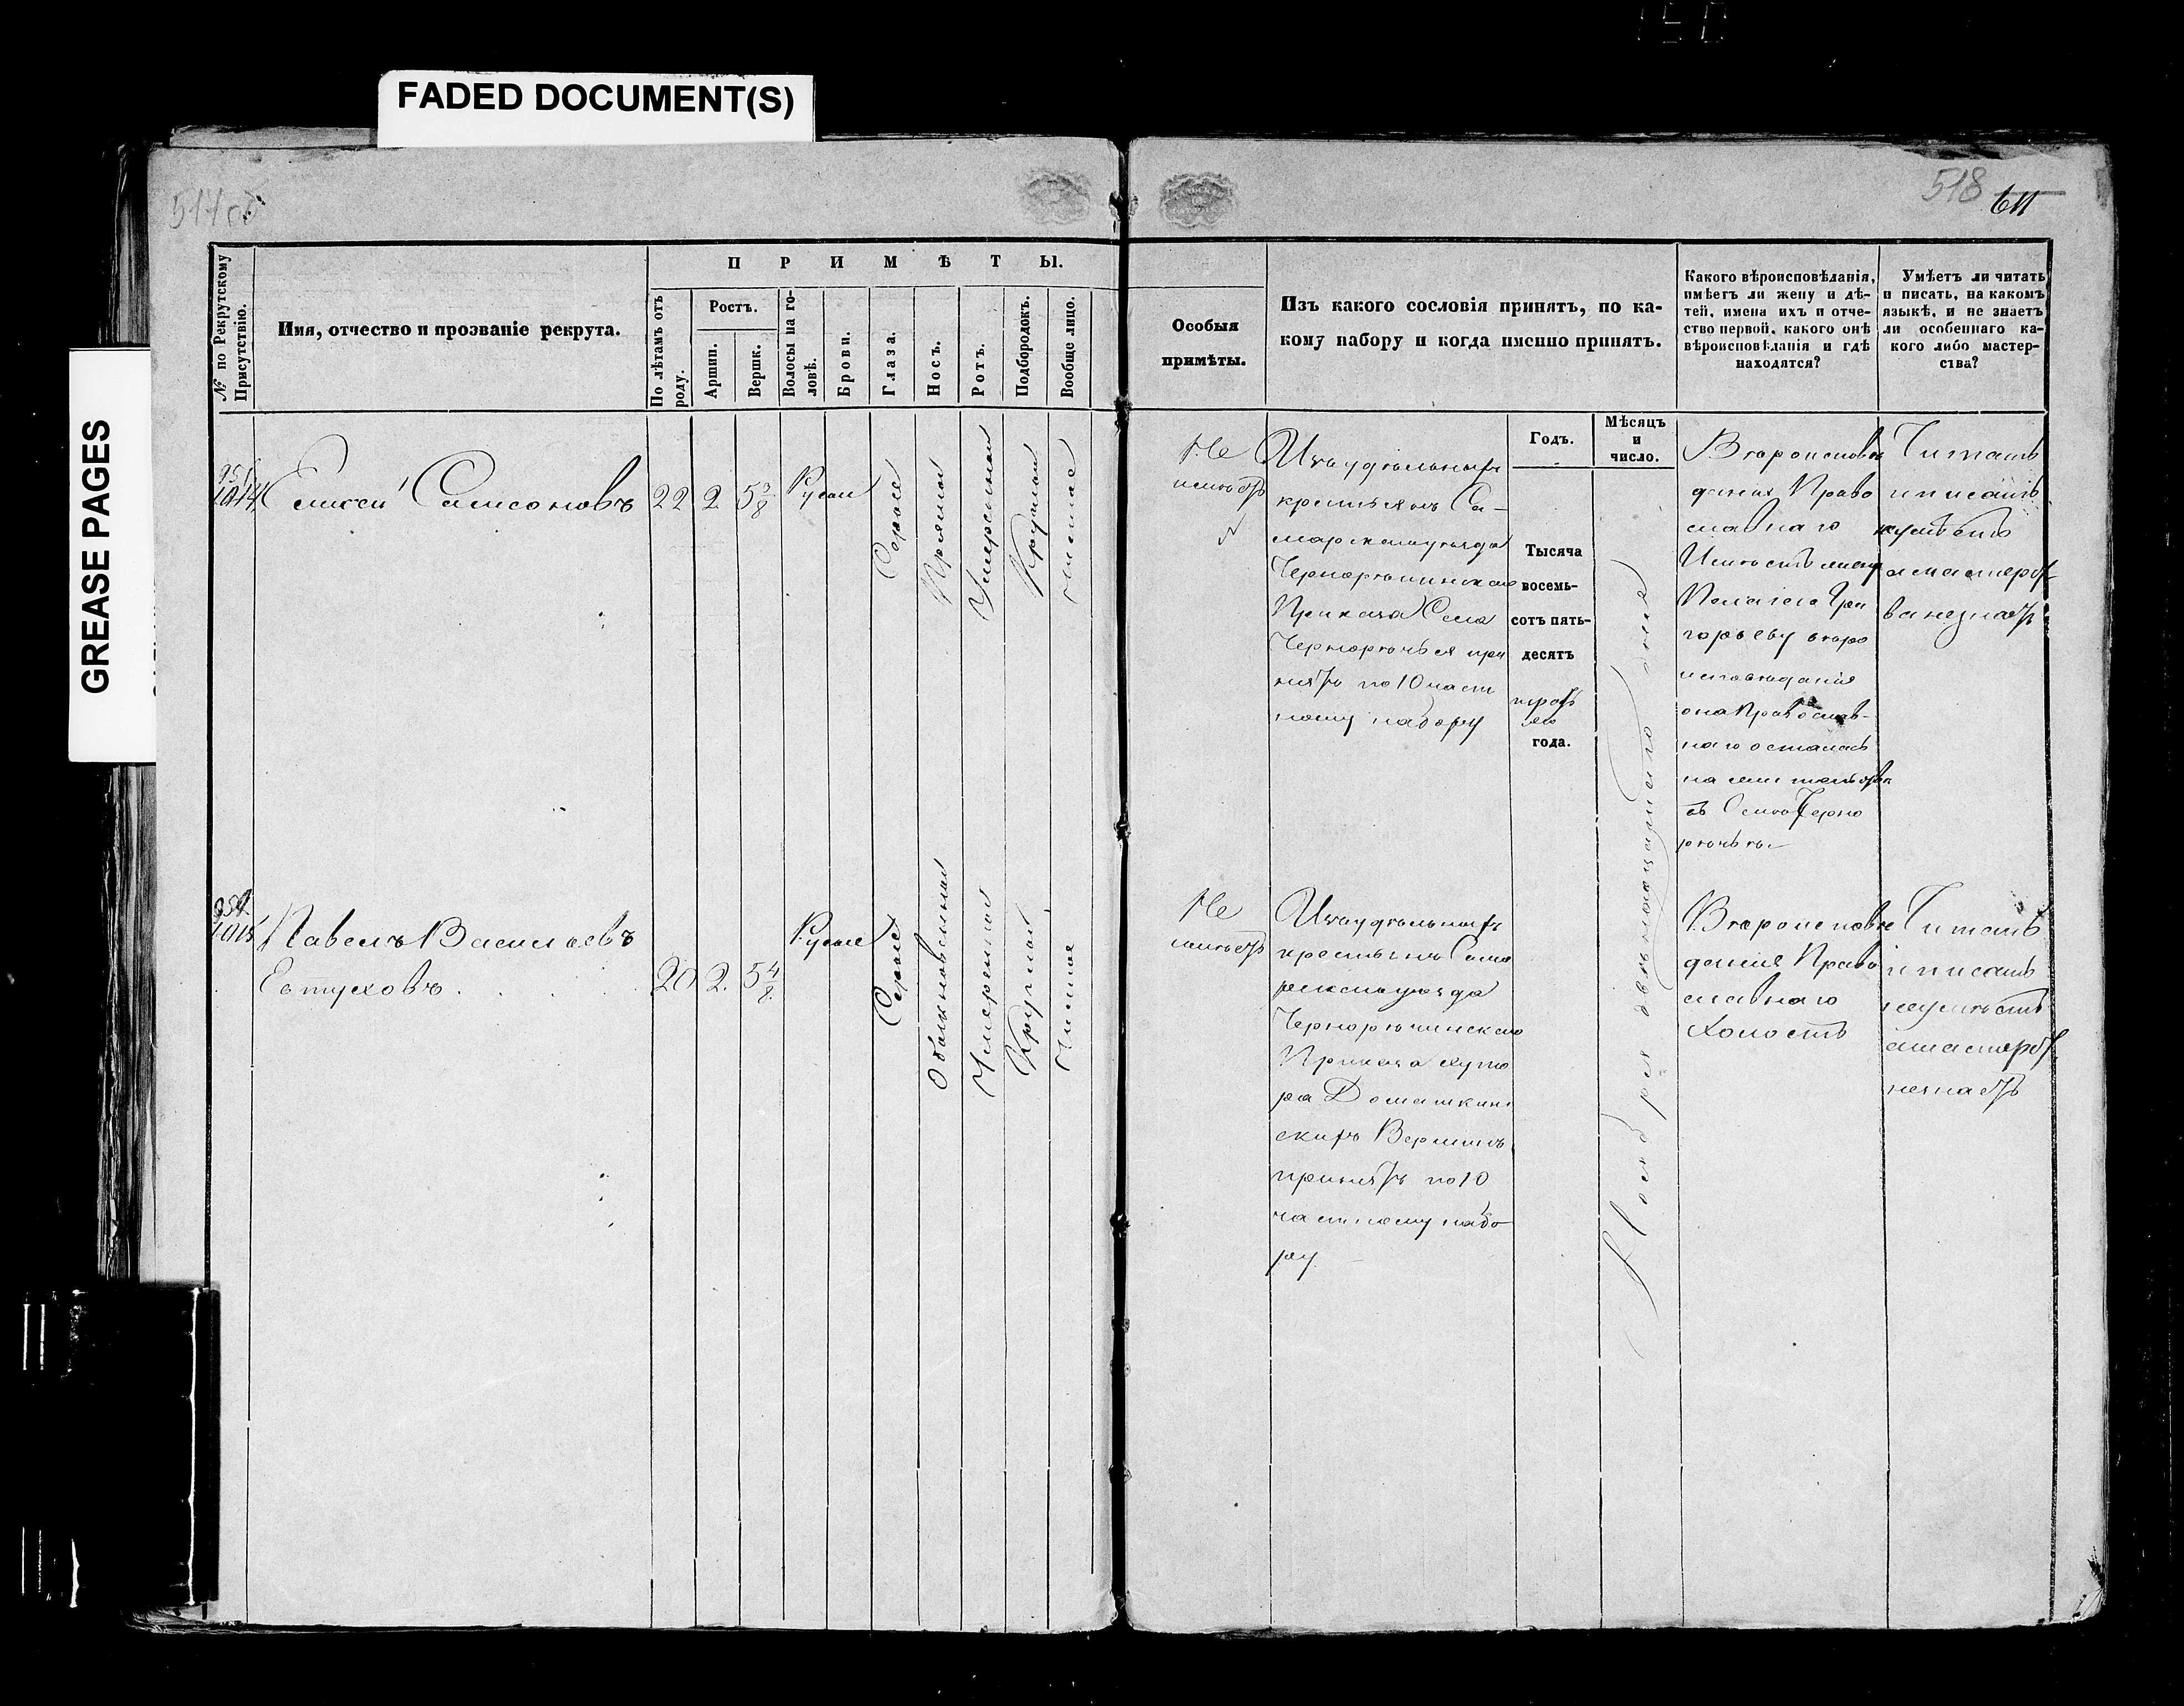 FADED DOCUMENT(S)
GREASE PAGES
518
611
№ по Рекрутскому
Присутствію.
Имя, отчество и прозваніе рекрута.
ПРИМѢТЫ.
По лѣтамъ отъ
роду.
Ростъ.
Аршин.
Вершк.
Волосы на го-
ловѣ.
Брови.
Глаза.
Носъ.
Ротъ.
Подбородокъ.
Вообще лицо.
Особыя
примѣты.
Изъ какого сословія принятъ, по ка-
кому набору и когда именно принятъ.
Какого вѣроисповѣданія,
имѣетъ ли жену и дѣ-
тей, имена ихъ и отче-
ство первой, какого онѣ
вѣроисповѣданія и гдѣ
находятся?
Умѣетъ ли читать
и писать, на какомъ
языкѣ, и не знаетъ
ли особеннаго ка-
кого либо мастер-
ства?
Годъ.
Мѣсяцъ
и
число.
1014
Самсоновъ
22
2
5 3/8
Русые
Сѣрые
Прямой
Умѣренной
Круглой
Чистое
Не
имѣетъ
Изъ удѣльныхъ
крестьянъ Са-
марскаго уѣзда
Чернорѣчинскаго
Приказа Села
Чернорѣчья при
нятъ по 10 част
ному набору
Тысяча
восемь-
сотъ пять-
десятъ
третья
го
года.
Ноября двенадцатаго дня
Вѣроисповѣ
данія Право
славнаго
Имѣетъ жену
Пелагею Гри
горьеву вѣро
исповѣданія
она Православ-
наго осталась
на жительствѣ
въ Селѣ Черно
рѣчьѣ
Читать
и писать
неумѣетъ
а мастерст
ва незнаетъ
1015
Павелъ Васильевъ
Евтуховъ.
20
2.
5 4/8
Русые
Сѣрые
Обыкновенной
Умѣренной
Круглой
Чистое
Не
имѣетъ
Изъ удѣльныхъ
крестьянъ Сама
рскаго уѣзда
Чернорѣчинскаго
Приказа хуто
ра Домашкин
скихъ Вершинъ
принятъ по 10
частному набо
ру
Вѣроисповѣ
данія Право
славнаго
Холостъ
Читать
и писать
неумѣетъ
а мастерст
незнаетъ